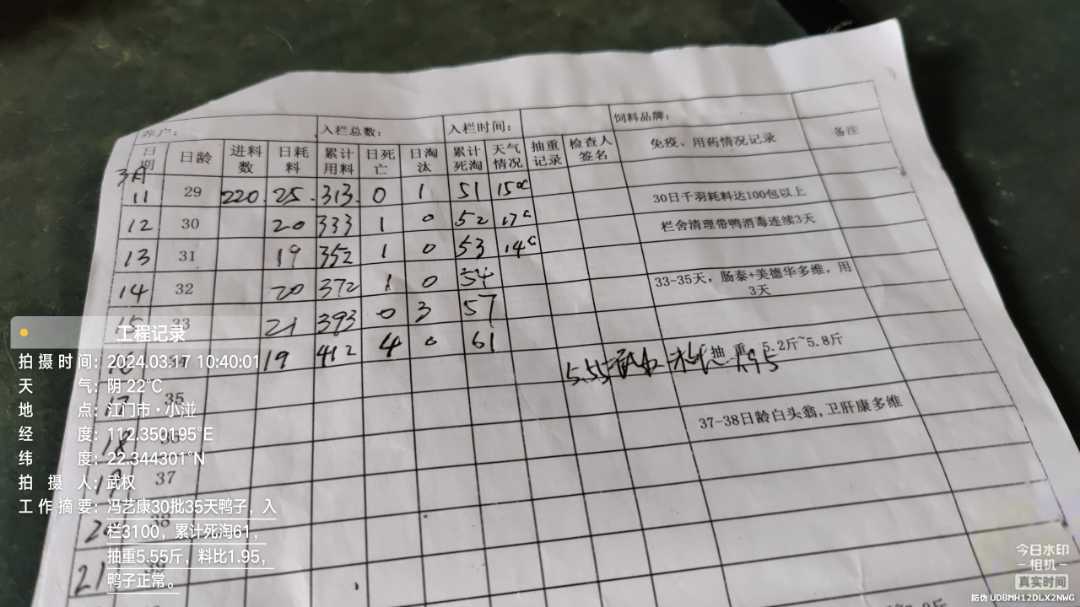 养户: 入栏总数: 入栏时间: 饲料品牌:
日期 日龄 进料数 日耗料 累计用料 日死亡 日淘汰 累计死淘 天气情况 抽重记录 检查人签名 免疫、用药情况记录 备注
3月
11 29 220 25 313 0 1 51 15℃ 30日千羽耗料达100包以上
12 30 20 333 1 0 52 17℃ 栏舍清理带鸭消毒连续3天
13 31 19 352 1 0 53 14℃
14 32 20 372 1 0 54 33-35天，肠泰+美德华多维，用3天
15 33 21 393 0 3 57
19 412 4 0 61 抽重 5.2斤~5.8斤
5.55 1.95
35
18 37-38日龄白头翁,卫肝康多维
19 37
2 38
21
工程记录
拍摄时间：2024.03.17 10:40:01
天气：阴 22℃
地点：江门市·小洴
经度：112.350195°E
纬度：22.344301°N
拍摄人：武权
工作摘要：冯艺康30批35天鸭子，入
栏3100，累计死淘61，
抽重5.55斤，料比1.95，
鸭子正常。
今日水印
相机
真实时间
防伪 UD8MH12DLX2NWG